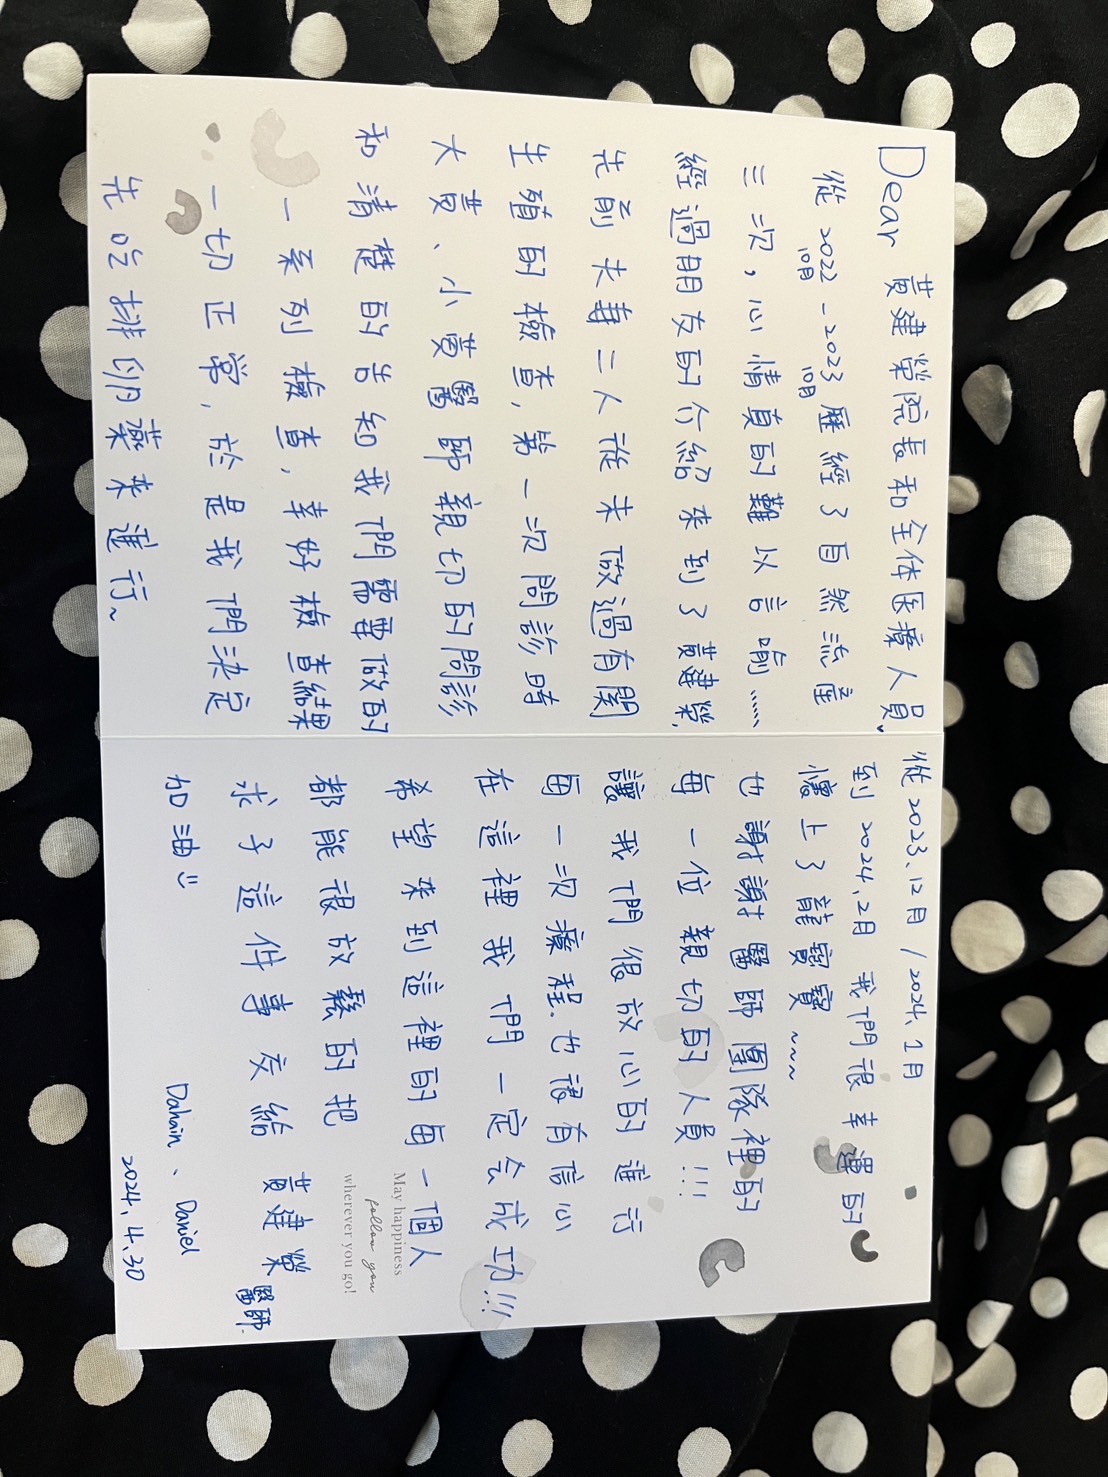 Dear 黃建榮院長和全体医療人員,
從 2022 - 2023 歷經了自然流產
10月 10月
三次，心情真的難以言喻……
經過朋友的介紹來到了黃建榮,
先前夫妻二人從未做過有関
生殖的檢查, 第一次問診時
大黄、小黄醫師親切的問診
和清楚的告知我們需要做的
一系列檢查, 幸好檢查結果
一切正常, 於是我們決定
先吃排卵藥來進行~
從 2023.12月 / 2024.1月
到 2024.2月 我們很幸運的
懷上了龍寶寶 ~~~
也謝謝醫師團隊裡的
每一位親切的人員!!!
讓我們很放心的進行
每一次療程.也很有信心
在這裡我們一定会成功!!!
希望來到這裡的每一個人
都能很放鬆的把
求子這件事交給 黃建榮醫師.
加油 :)
Dahain、Daniel
2024.4.30
May happiness
follow you
wherever you go!